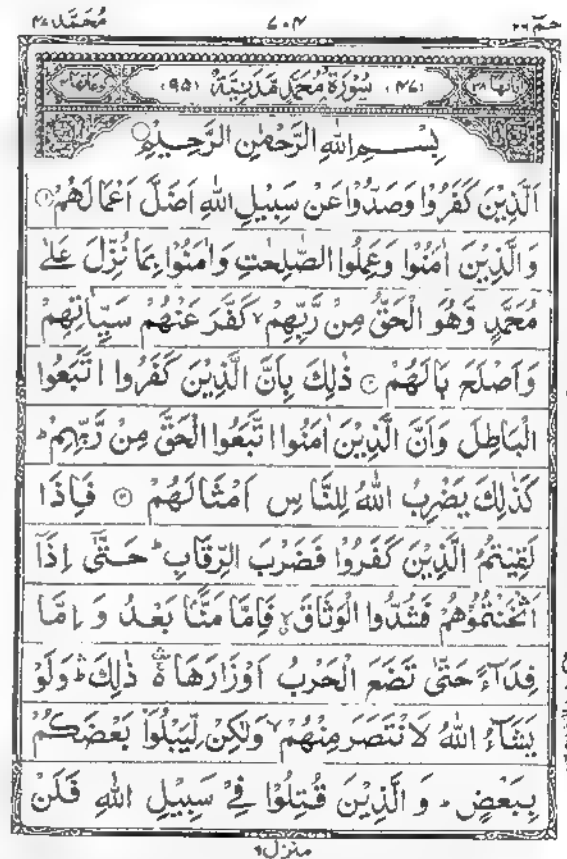 حٰمٓ ٢٦
٧٠٤
مُحَمَّد ٤٧
اٰیَاتُهَا ٣٨
(٤٧) سُوْرَةُ مُحَمَّدٍ مَّدَنِيَّةٌ (٩٥)
رُكُوْعَاتُهَا ٤
بِسْـــمِ اللّٰهِ الرَّحْمٰنِ الرَّحِيْمِ
اَلَّذِيْنَ كَفَرُوْا وَصَدُّوْا عَنْ سَبِيْلِ اللّٰهِ اَضَلَّ اَعْمَالَهُمْ ۝١
وَالَّذِيْنَ اٰمَنُوْا وَعَمِلُوا الصّٰلِحٰتِ وَاٰمَنُوْا بِمَا نُزِّلَ عَلٰى
مُحَمَّدٍ وَّهُوَ الْحَقُّ مِنْ رَّبِّهِمْ ۙ كَفَّرَ عَنْهُمْ سَيِّاٰتِهِمْ
وَاَصْلَحَ بَالَهُمْ ۝٢ ذٰلِكَ بِاَنَّ الَّذِيْنَ كَفَرُوا اتَّبَعُوا
الْبَاطِلَ وَاَنَّ الَّذِيْنَ اٰمَنُوا اتَّبَعُوا الْحَقَّ مِنْ رَّبِّهِمْ ؕ
كَذٰلِكَ يَضْرِبُ اللّٰهُ لِلنَّاسِ اَمْثَالَهُمْ ۝٣ فَاِذَا
لَقِيْتُمُ الَّذِيْنَ كَفَرُوْا فَضَرْبَ الرِّقَابِ ؕ حَتّٰٓى اِذَآ
اَثْخَنْتُمُوْهُمْ فَشُدُّوا الْوَثَاقَ ۙ فَاِمَّا مَنًّۢا بَعْدُ وَ اِمَّا
فِدَآءً حَتّٰى تَضَعَ الْحَرْبُ اَوْزَارَهَا ۛ۬ ذٰلِكَ ؕۛ وَلَوْ
يَشَآءُ اللّٰهُ لَانْتَصَرَ مِنْهُمْ ۙ وَلٰكِنْ لِّيَبْلُوَا۟ بَعْضَكُمْ
بِبَعْضٍ ؕ وَ الَّذِيْنَ قُتِلُوْا فِيْ سَبِيْلِ اللّٰهِ فَلَنْ
منزل ٦